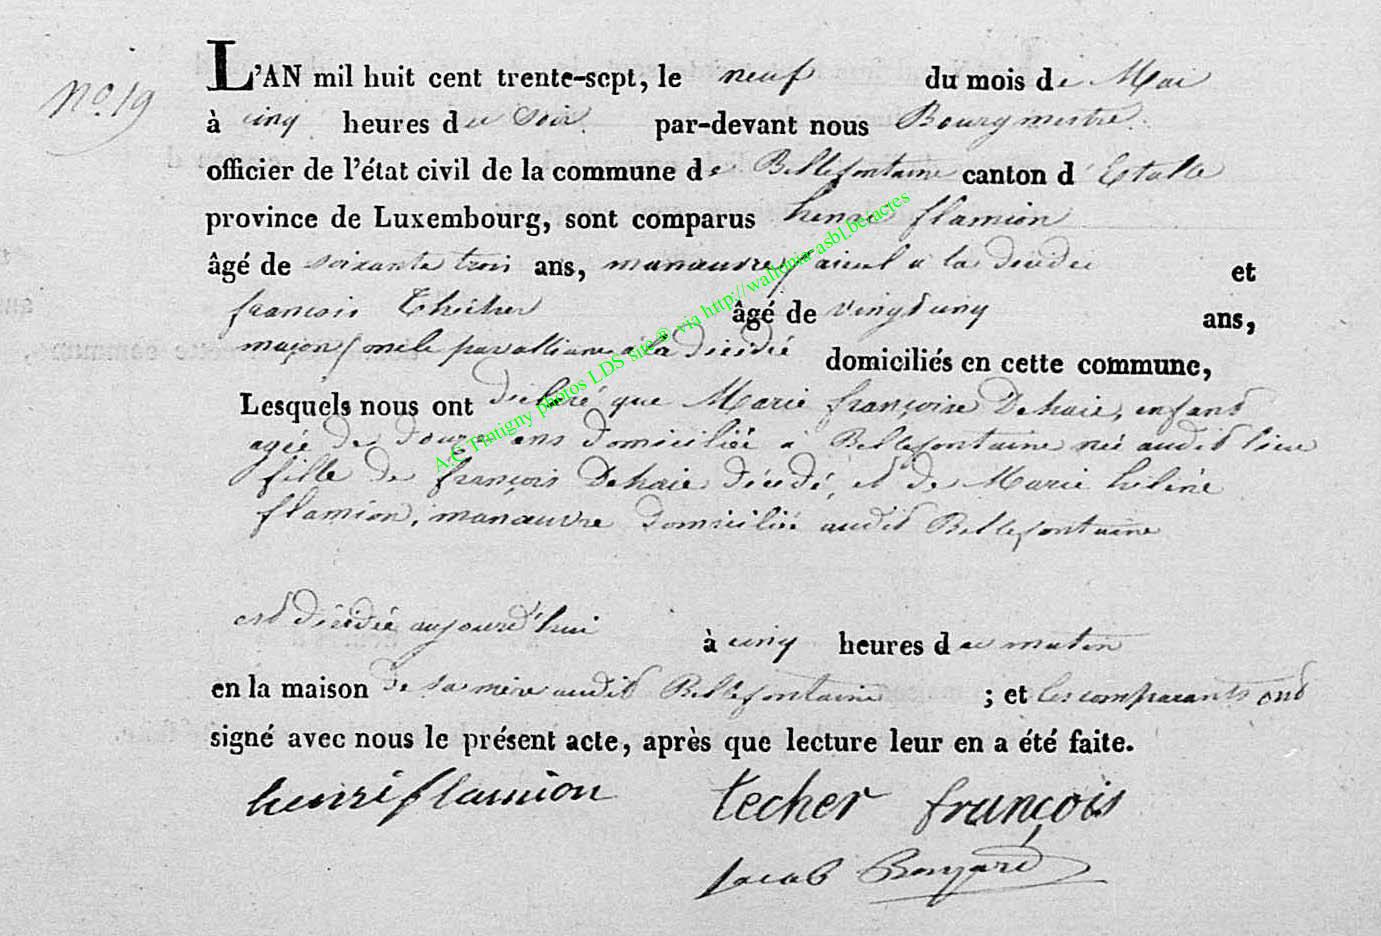 No. 19
L'AN mil huit cent trente-sept, le neuf du mois de Mai
à cinq heures du Soir par-devant nous Bourgmestre
officier de l'état civil de la commune de Bellefontaine canton d'Etalle
province de Luxembourg, sont comparus henri flamion
âgé de soixante trois ans, manœuvre, aieul a la décédée et
francois Thécher âgé de vingt cinq ans,
maçon, oncle par alliance a la décédé domiciliés en cette commune,
Lesquels nous ont déclaré que Marie françoise Dehaie, enfant
agée de douze ans domiciliée a Bellefontaine née audit lieu
fille de françois Dehaie décédé, et de Marie héléne
flamion, manœuvre domiciliée audit Bellefontaine
est décédée aujourd'hui à cinq heures du matin
en la maison de sa mère audit Bellefontaine ; et les comparants ont
signé avec nous le présent acte, après que lecture leur en a été faite.
henri flamion techer françois
Jacob
A.C Tintigny photos LDS site® via http://wallonia-asbl.be/actes